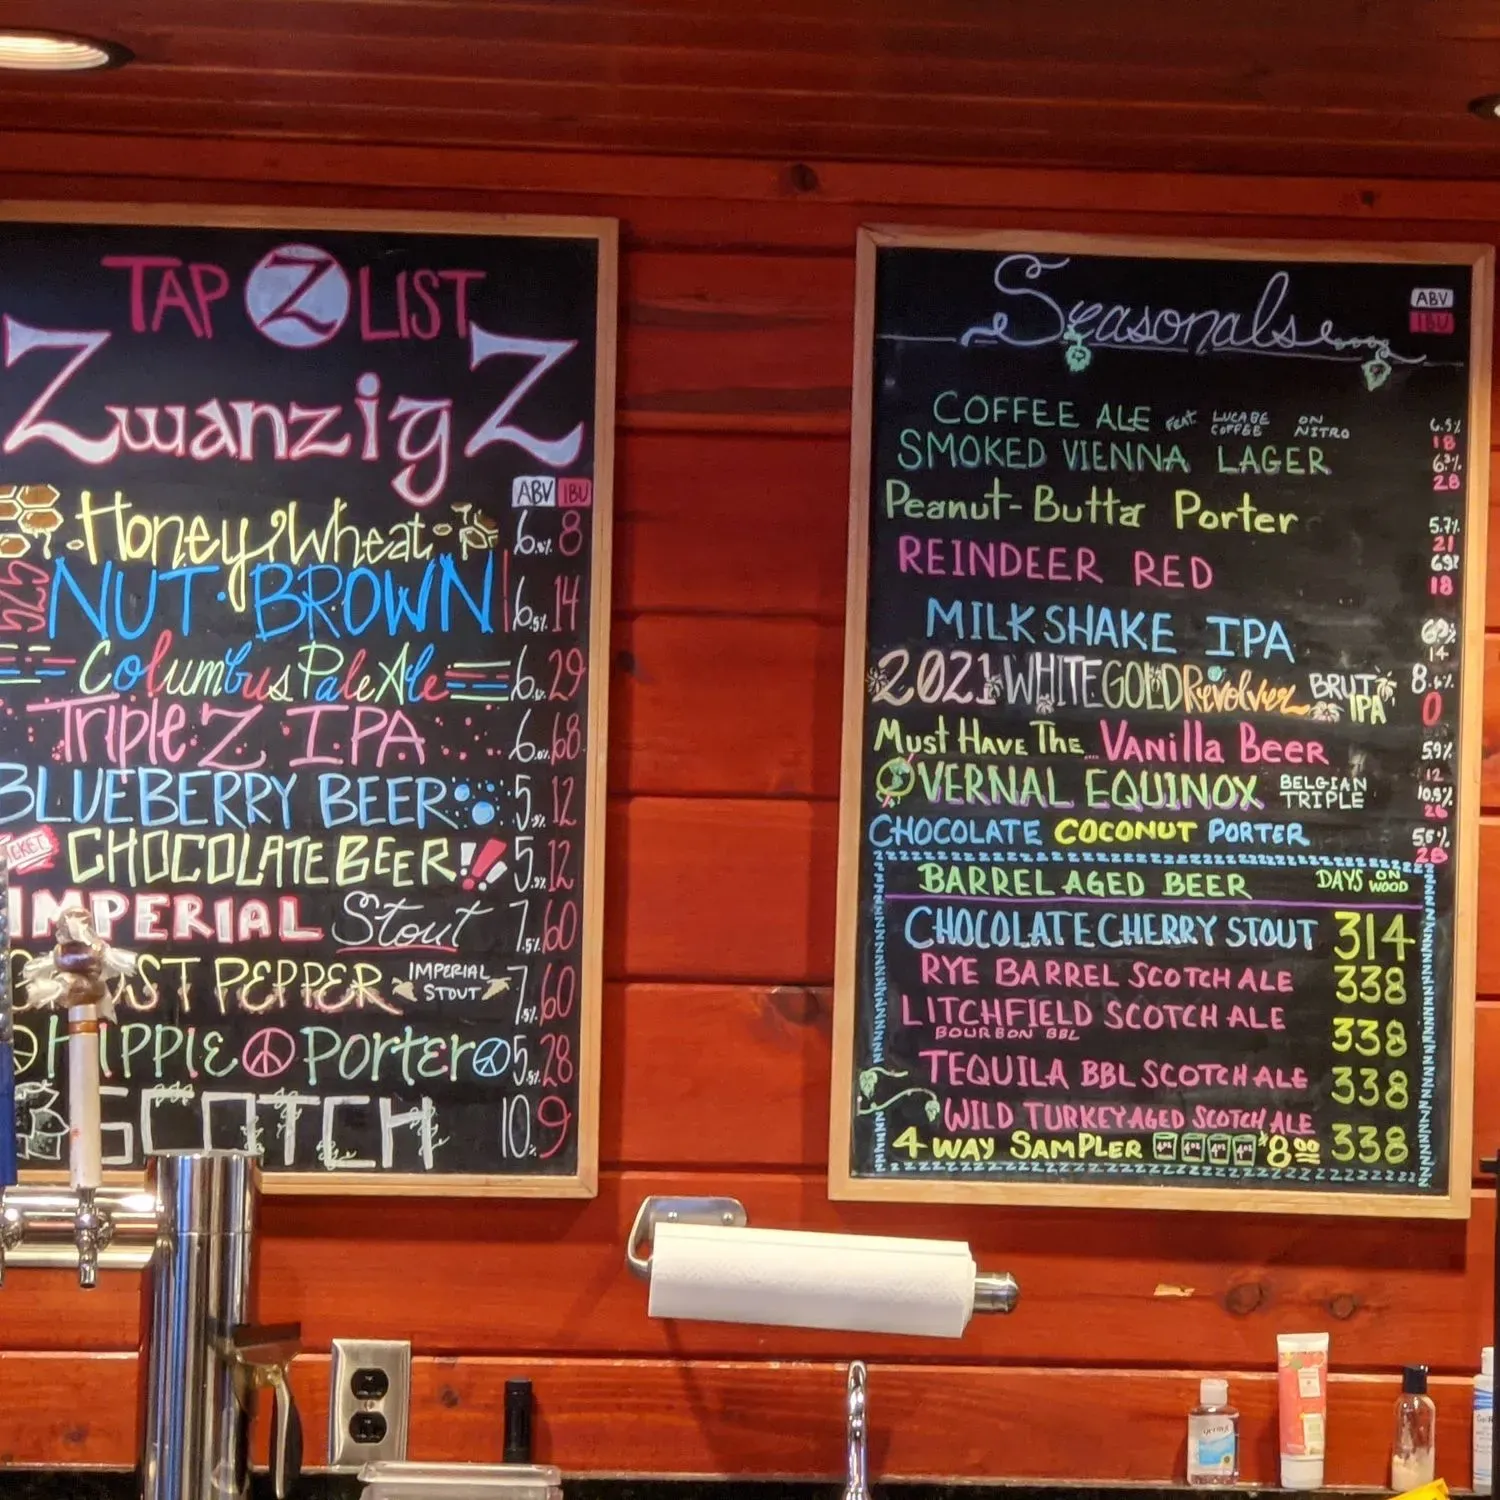 TAP Z LIST
ZwanzigZ
ABV IBU
Honey Wheat 8
NUT · BROWN 6.5% 14
Columbus Pale Ale 29
Triple Z IPA 68
BLUEBERRY BEER 5 12
CHOCOLATE BEER!! 5 12
IMPERIAL Stout 7.5% 60
GHOST PEPPER IMPERIAL STOUT 7.5% 60
HIPPIE PORTER 5.5% 28
SCOTCH 10% 9
Seasonals
ABV
IBU
COFFEE ALE FEAT. LUCABE COFFEE ON NITRO 6.5%
18
SMOKED VIENNA LAGER
28
Peanut-Butta Porter 5.7%
21
REINDEER RED
18
MILKSHAKE IPA
14
2021 WHITE GOLD Revolver BRUT IPA
0
MUST HAVE THE... VANILLA BEER 5.9%
12
VERNAL EQUINOX BELGIAN TRIPLE 10.5%
26
CHOCOLATE COCONUT PORTER 5.5%
28
BARREL AGED BEER DAYS ON WOOD
CHOCOLATE CHERRY STOUT 314
RYE BARREL SCOTCH ALE 338
LITCHFIELD SCOTCH ALE 338
BOURBON BBL
TEQUILA BBL SCOTCH ALE 338
WILD TURKEY AGED SCOTCH ALE 338
4 WAY SAMPLER 4oz 4oz 4oz 4oz $8.00